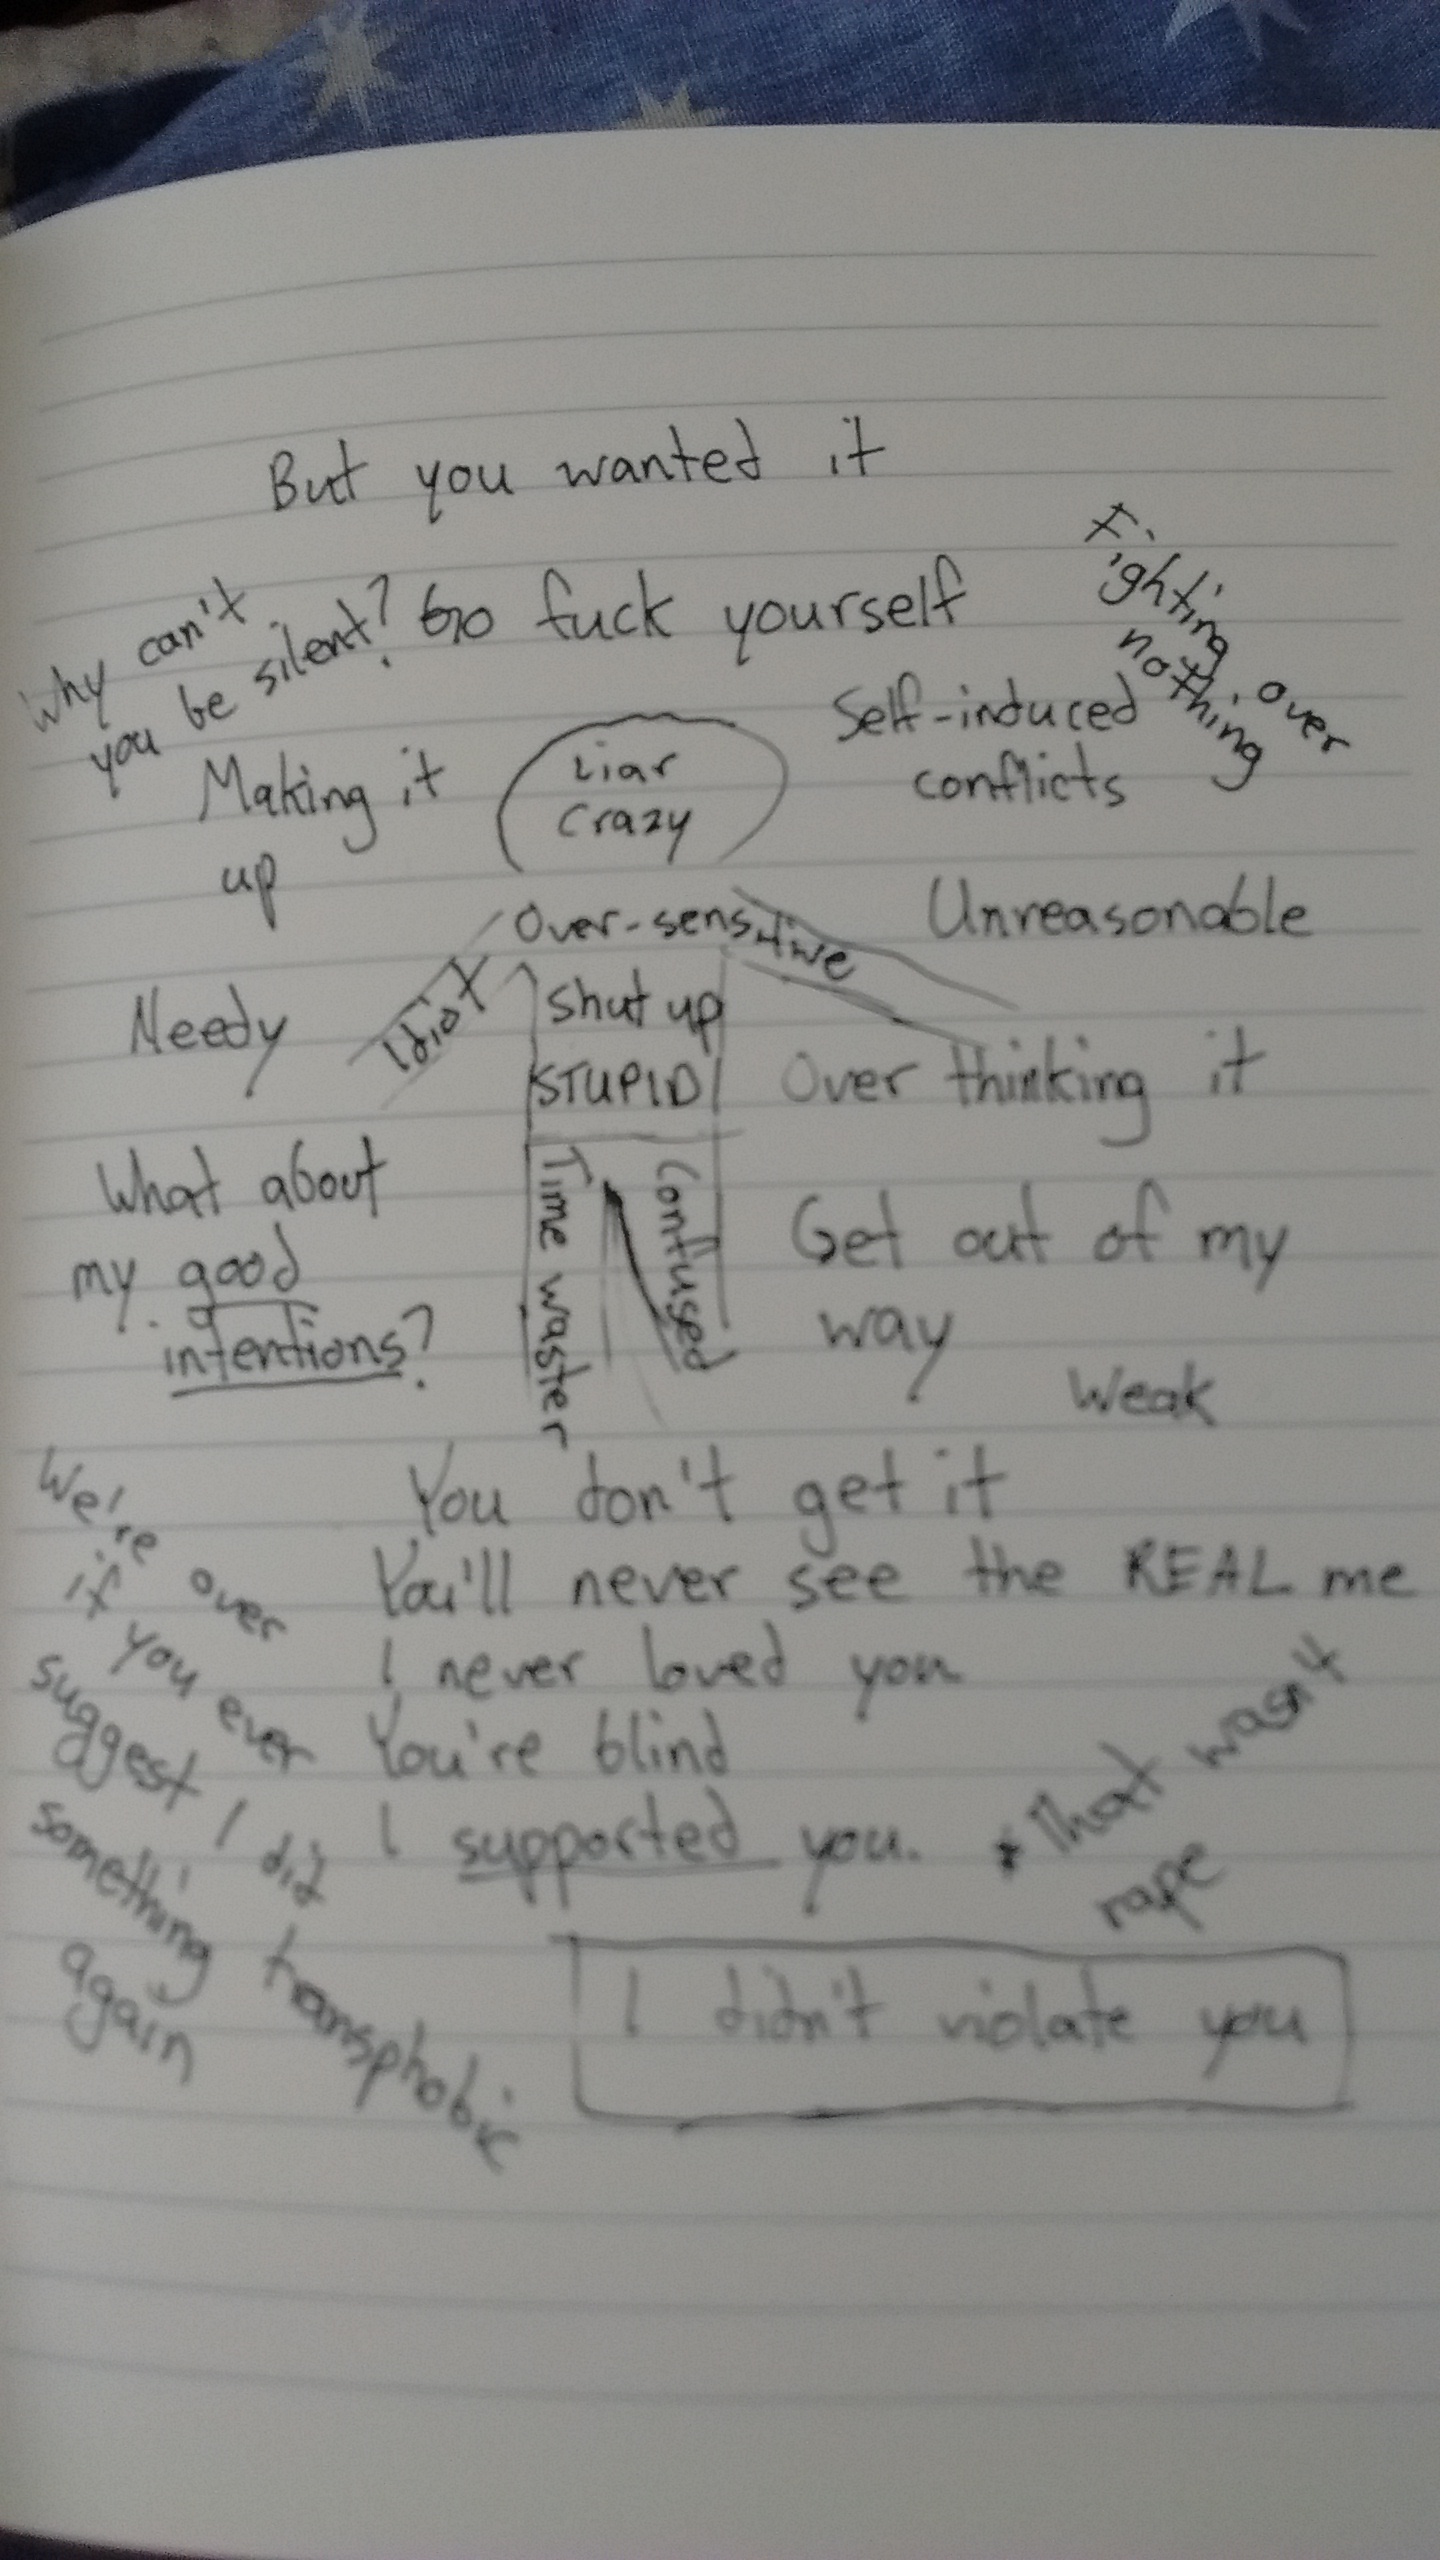 But you wanted it
Why can't
you be silent?
Go fuck yourself
Fighting over
nothing
Self-induced
conflicts
Making it
up
Liar
Crazy
Unreasonable
Over-sensitive
Needy
Idiot
Shut up
STUPID
Over thinking it
What about
my good
intentions?
Time waster
Confused
Get out of my
way
Weak
We're over
if you ever
suggest I did
something transphobic
again
You don't get it
You'll never see the REAL me
I never loved you
You're blind
I supported you.
* That wasn't
rape
I didn't violate you